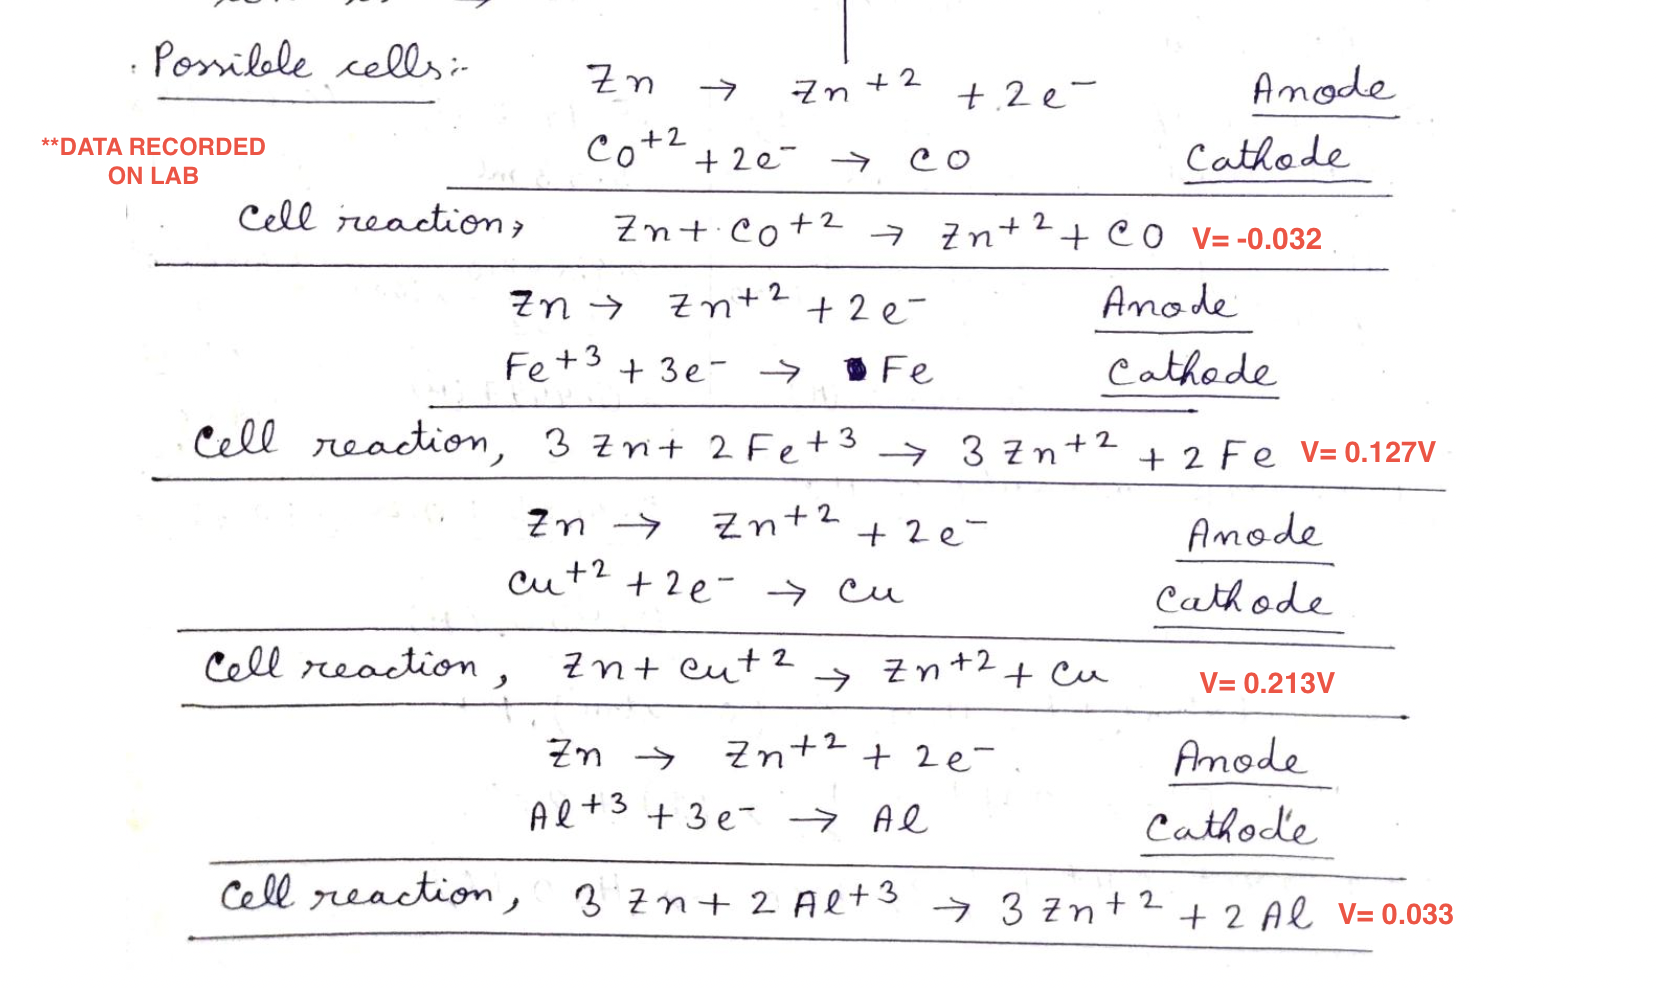 Possible cells:-
Zn → Zn+2 + 2e- Anode
**DATA RECORDED
ON LAB
Co+2 + 2e- → CO Cathode
Cell reaction, Zn + Co+2 → Zn+2 + CO V= -0.032
Zn → Zn+2 + 2e- Anode
Fe+3 + 3e- → Fe Cathode
Cell reaction, 3 Zn + 2 Fe+3 → 3 Zn+2 + 2 Fe V= 0.127V
Zn → Zn+2 + 2e- Anode
Cu+2 + 2e- → Cu Cathode
Cell reaction, Zn + Cu+2 → Zn+2 + Cu V= 0.213V
Zn → Zn+2 + 2e- Anode
Al+3 + 3e- → Al Cathode
Cell reaction, 3 Zn + 2 Al+3 → 3 Zn+2 + 2 Al V= 0.033